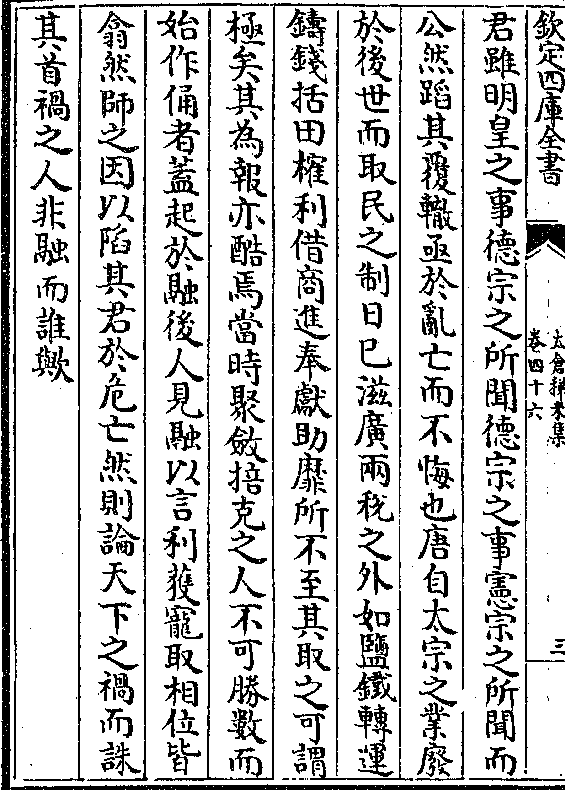 欽定四庫全書
太倉稊米集
卷四十六
三
君雖明皇之事德宗之所聞德宗之事憲宗之所聞而
公然蹈其覆轍亟於亂亡而不悔也唐自太宗之業廢
於後世而取民之制日已滋廣兩稅之外如鹽鐵轉運
鑄錢括田榷利借商進奉獻助靡所不至其取之可謂
極矣其為報亦酷焉當時聚斂掊克之人不可勝數而
始作俑者蓋起於融後人見融以言利獲寵取相位皆
翕然師之因以陷其君於危亡然則論天下之禍而誅
其首禍之人非融而誰歟